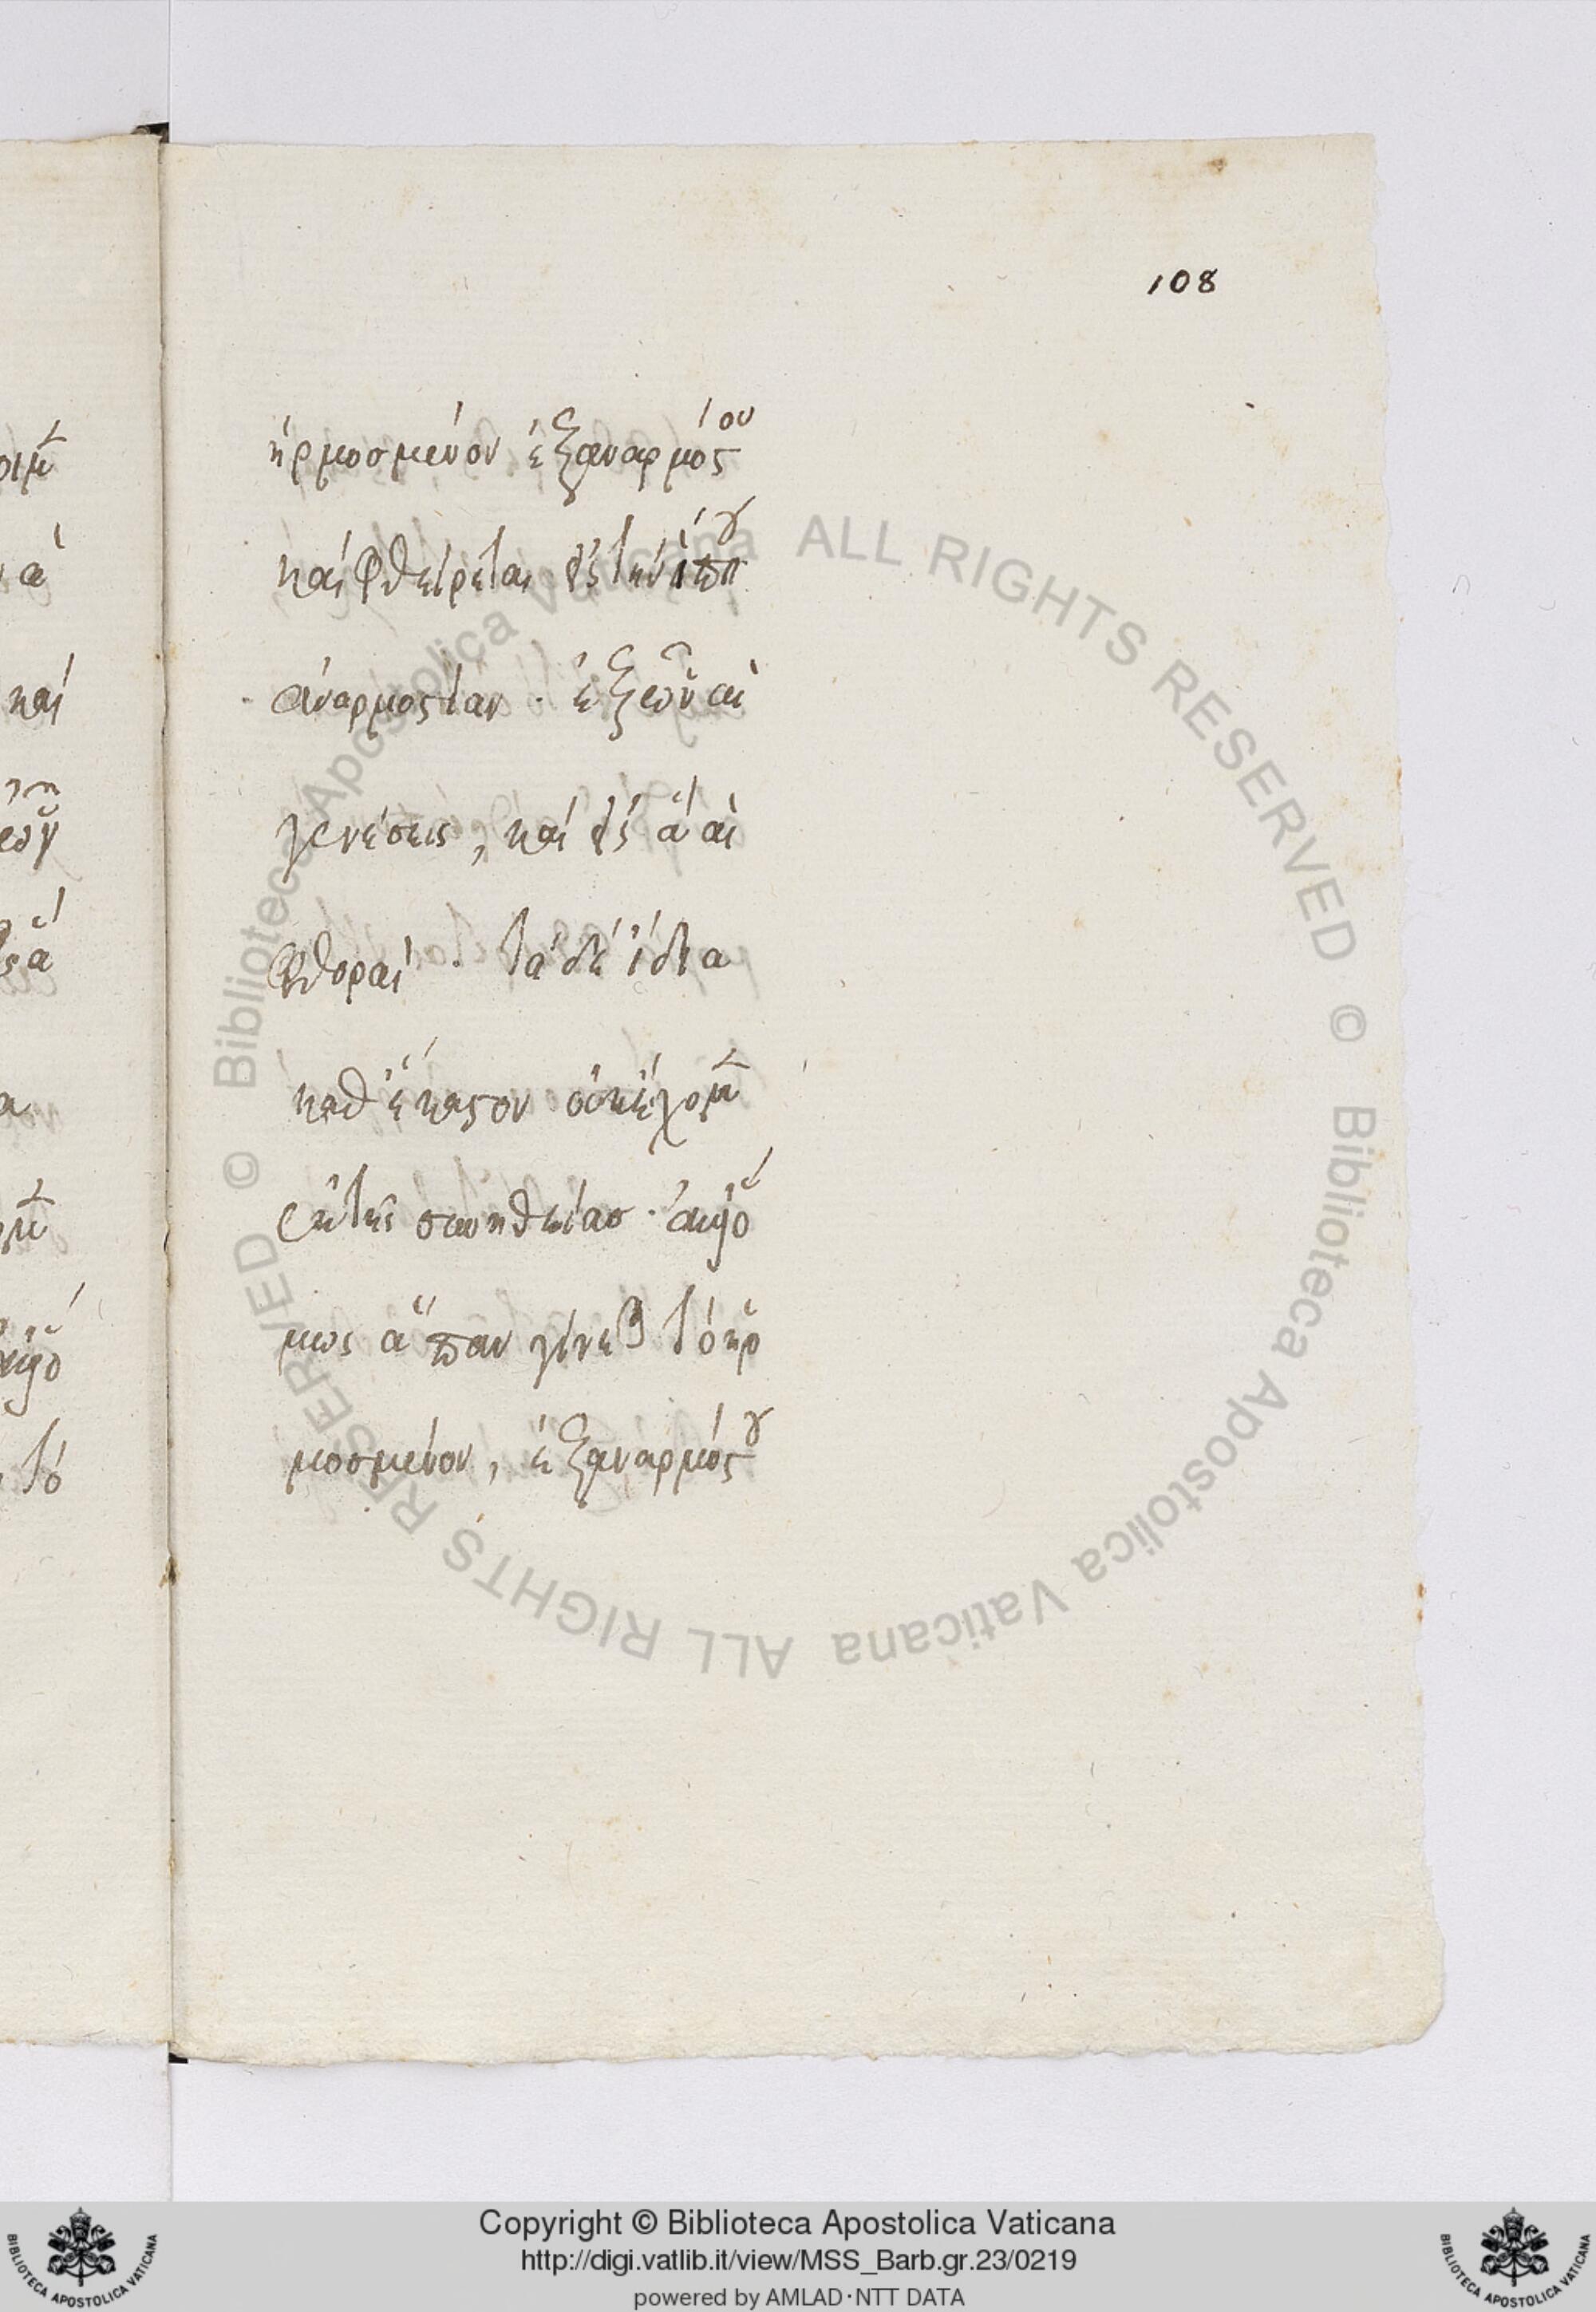 108
ἡρμοσμένον ἐξ ἀναρμόςου
καὶ φθείρεται εἰς τὴν ἀπ
ἀναρμοςίαν · ἐξ ὧν αἱ
γενέσεις, καὶ εἰς ἃ αἱ
φθοραί · τὰ δὲ ἴδια
καθ ἕκαςον οὐκ ἔχομ
ἐκ τῆς συνηθείασ ·
μως ἅπαν γίνε τὸ ἡρ
μοσμένον, ἐξ ἀναρμόςου
καὶ
τὸ
© Biblioteca Apostolica Vaticana ALL RIGHTS RESERVED © Biblioteca Apostolica Vaticana ALL RIGHTS RESERVED
Copyright © Biblioteca Apostolica Vaticana
http://digi.vatlib.it/view/MSS_Barb.gr.23/0219
powered by AMLAD·NTT DATA
BIBLIOTECA APOSTOLICA VATICANA
BIBLIOTECA APOSTOLICA VATICANA